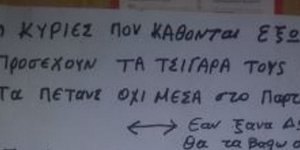 ΚΥΡΙΕΣ ΠΟΥ ΚΑΘΟΝΤΑΙ ΕΞΩ
ΠΡΟΣΕΧΟΥΝ ΤΑ ΤΣΙΓΑΡΑ ΤΟΥΣ
ΤΑ ΠΕΤΑΝΕ ΟΧΙ ΜΕΣΑ ΣΤΟ Παρτ
↔ Εαν ξανα Δ
Θα τα βαθω